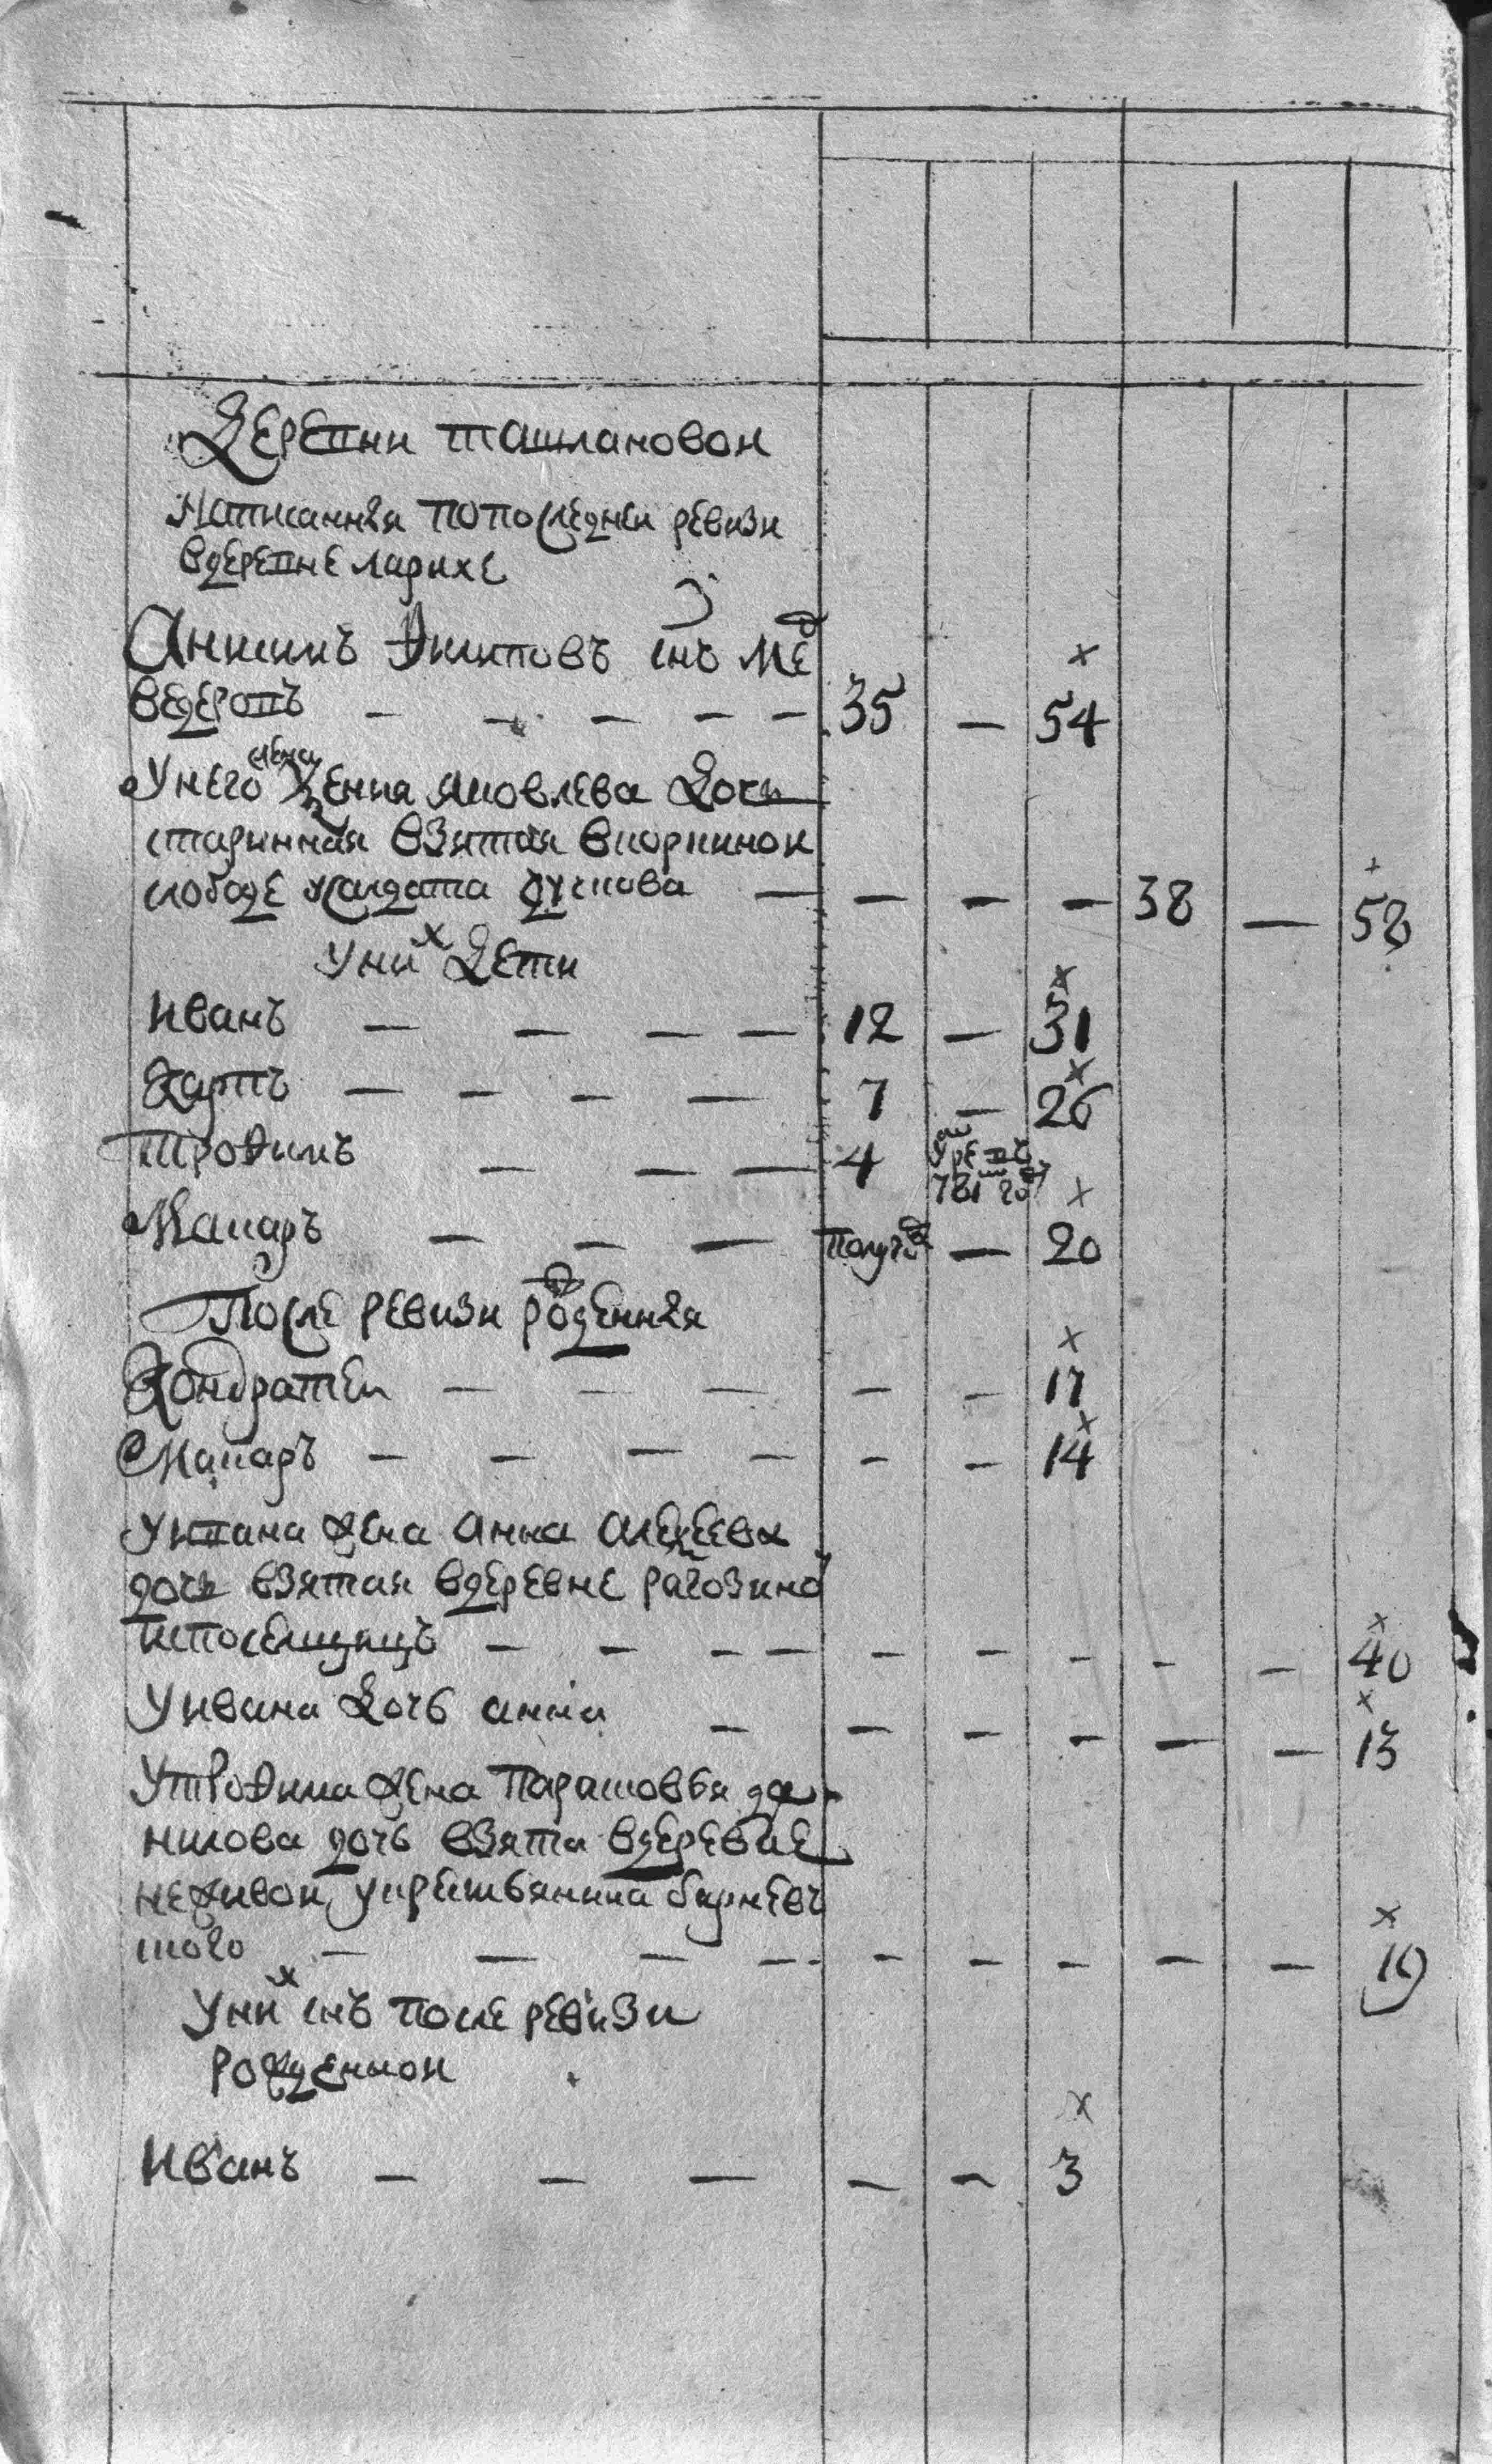 Деревни Ташлановои
Написанныя попоследнеи ревизи
вдеревне ларихе
Аникинъ Филиповъ снъ Ме
ведевъ — — — — — 35 — 54
Унего жена Ксенья яковлева дочь
старинная взятая вкоркинои
слободе усалдата — — — — 38 — 58
Уних дети
Иванъ — — — — 12 — 31
Карпъ — — — — 7 — 26
Трофимъ — — — 4
781 году
Макаръ — — — полугоду — 20
После ревизи рожденныя
Кондратеи — — — — — 17
Макаръ — — — — — — 14
Уивана жена Анна алексеева
дочь взятая вдеревне рагозинои
испоселщицъ — — — — — — — — — 40
Уивана дочь анна — — — — — — 13
Утрофима жена Парасковья да
нилова дочь взята вдеревне
неживои укрестьянина барневъ
ского — — — — — — — — — 19
Уних снъ после ревизи
рожденнои
Иванъ — — — — — 3